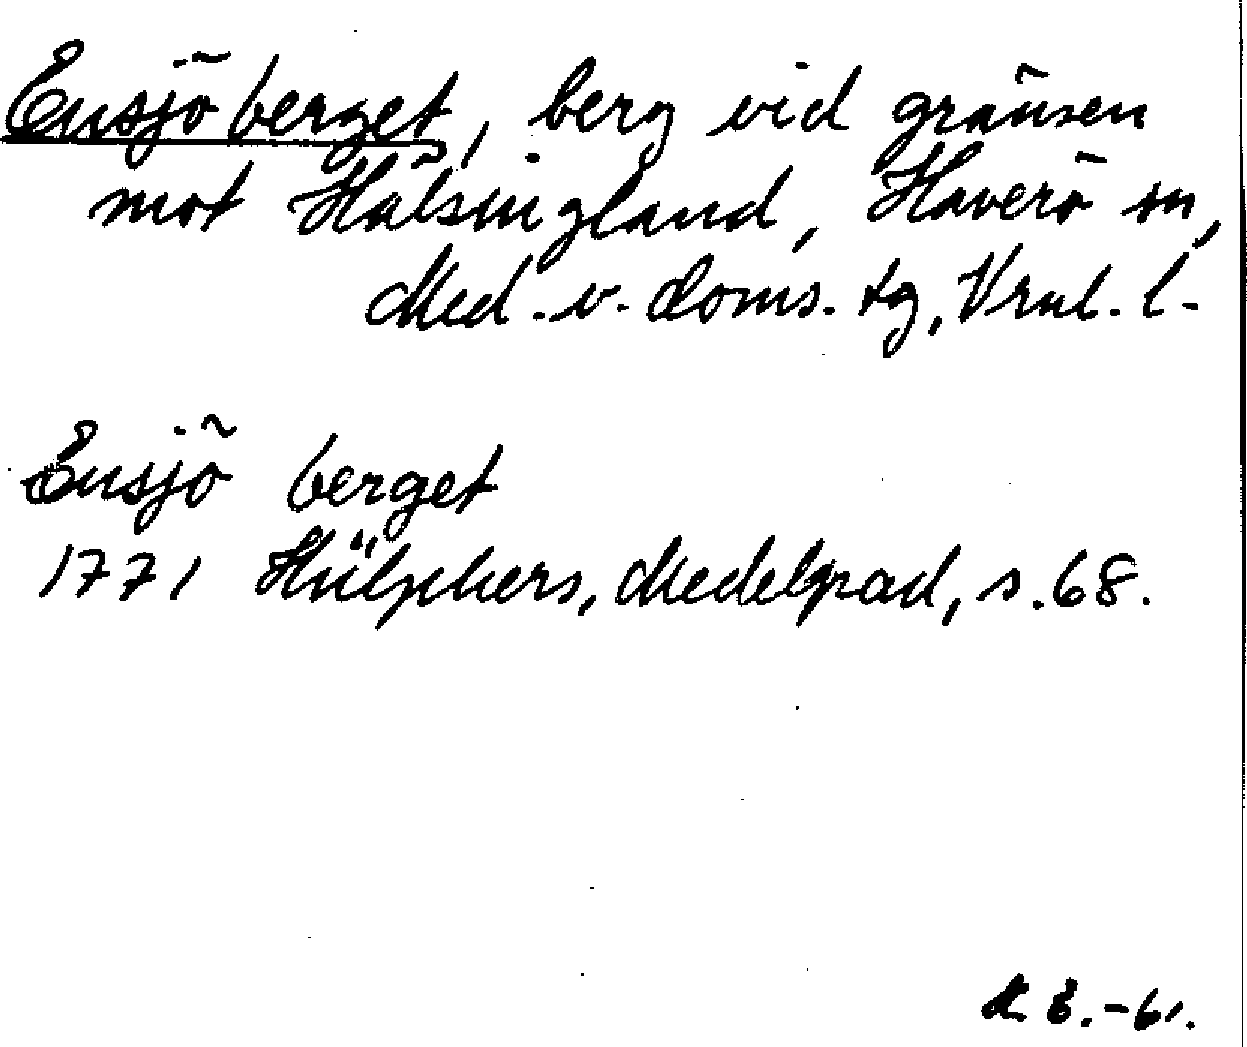 Ensjöberget, berg vid gränsen
mot Hälsingland, Haverö sn,
Med. v. doms. tg, Vrnl. l.
Ensjö berget
1771 Hülphers, Medelpad, s. 68.
-61.